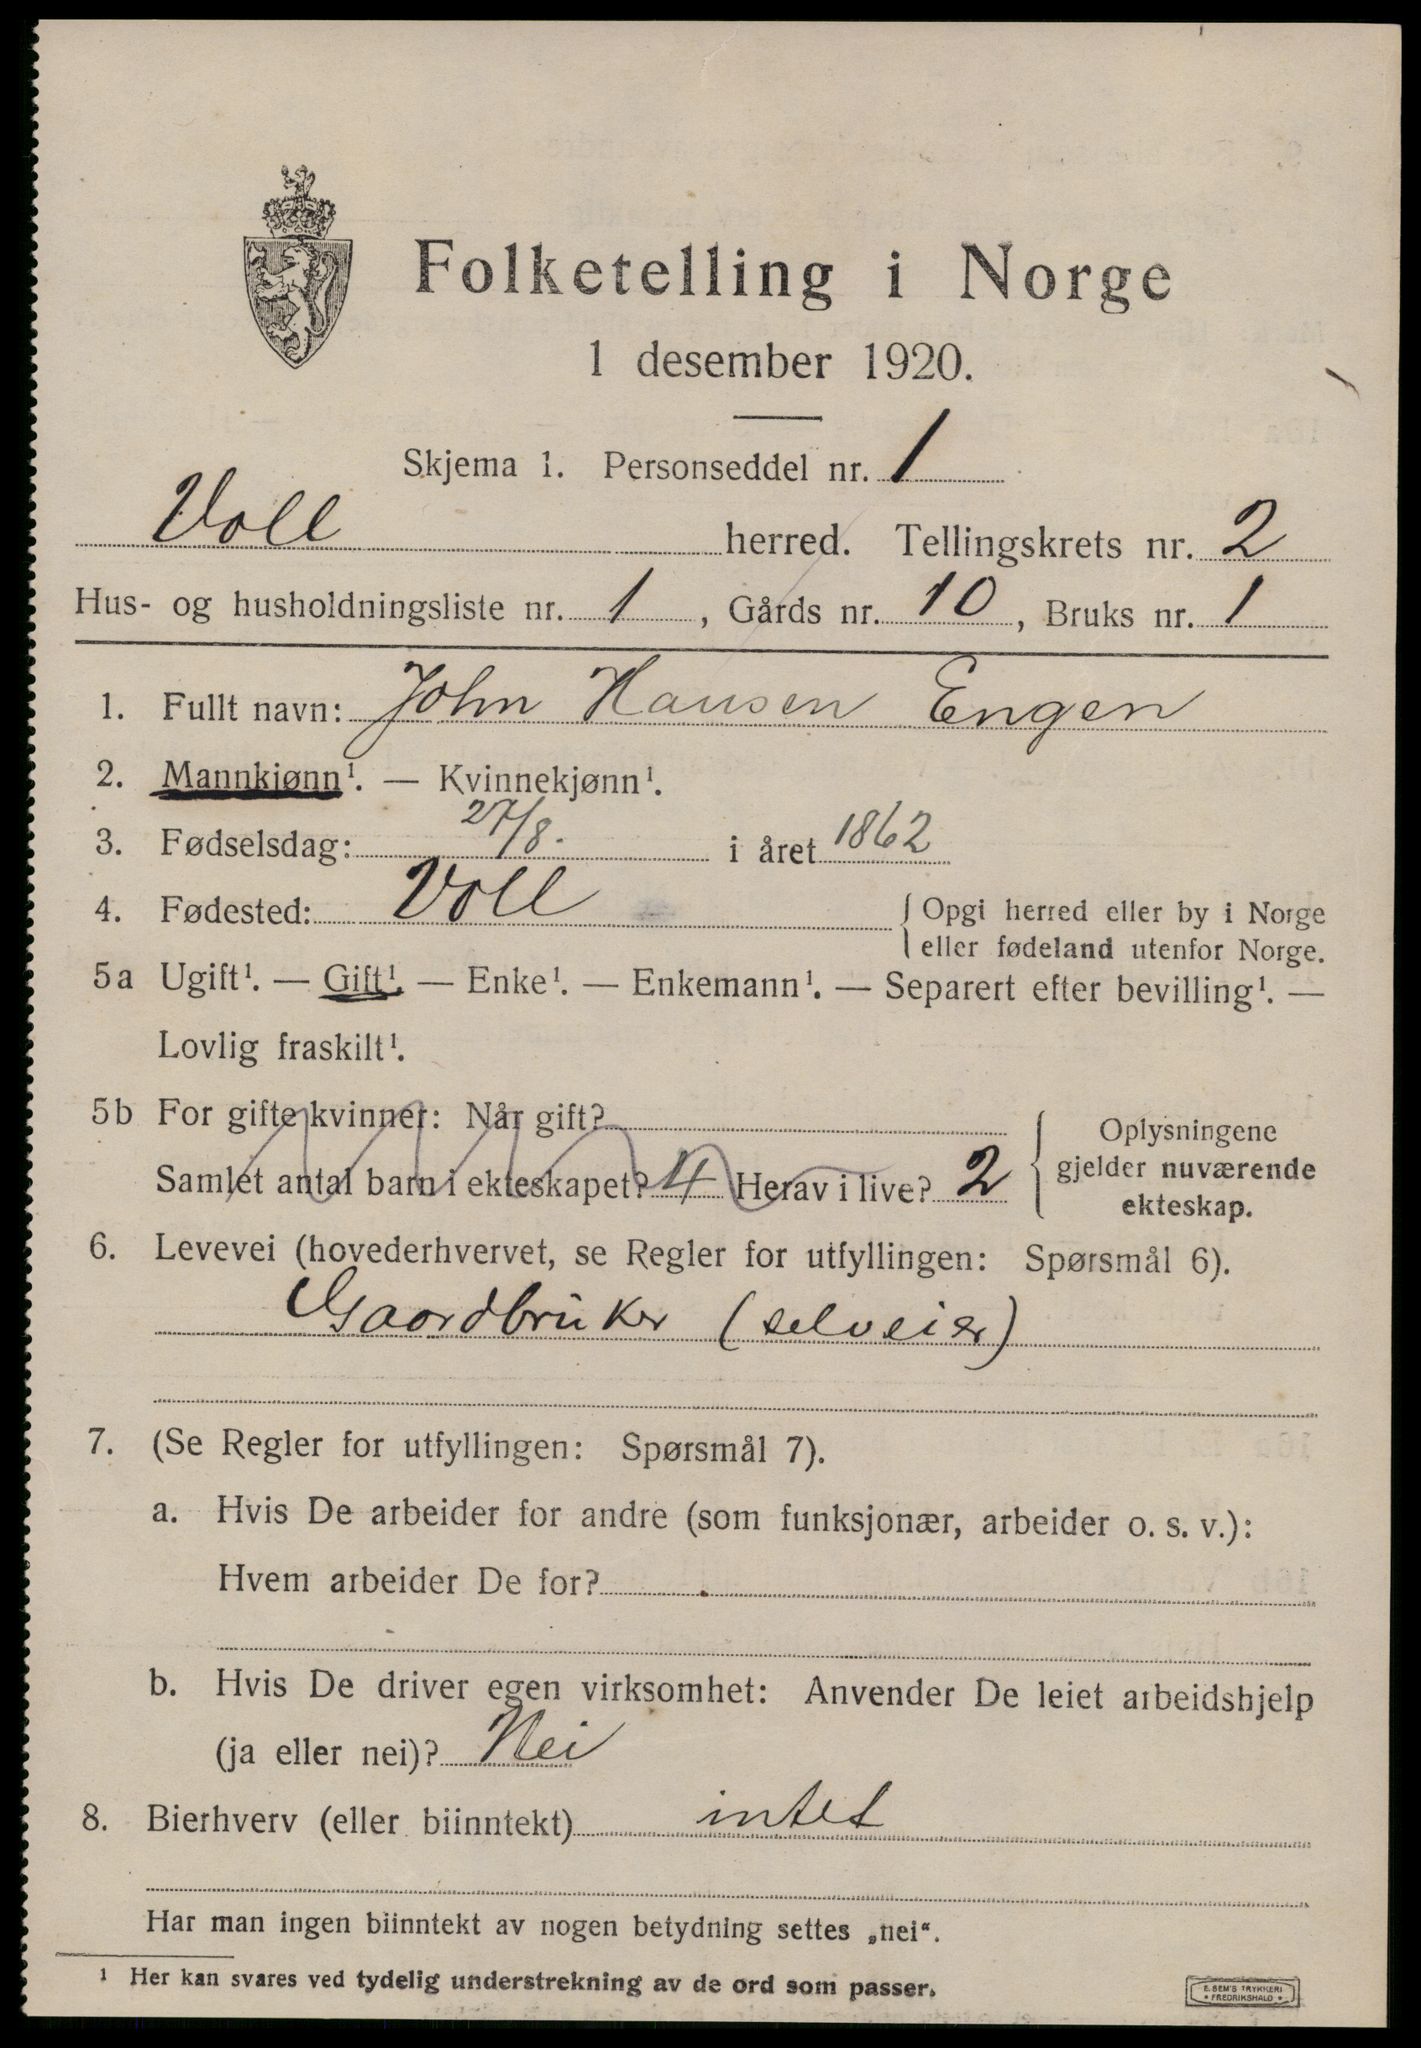 Folketelling i Norge
1 desember 1920.
Skjema 1. Personseddel nr. 1
Voll herred. Tellingskrets nr. 2
Hus- og husholdningsliste nr. 1, Gårds nr. 10, Bruks nr. 1
1. Fullt navn: John Hansen Engen
2. Mannkjønn¹. — Kvinnekjønn¹.
3. Fødselsdag: 27/8. i året 1862
4. Fødested: Voll { Opgi herred eller by i Norge
eller fødeland utenfor Norge.
5a Ugift¹. — Gift¹. — Enke¹. — Enkemann¹. — Separert efter bevilling¹. —
Lovlig fraskilt¹.
5b For gifte kvinner: Når gift?
Samlet antal barn i ekteskapet? 4 Herav i live? 2
Oplysningene
gjelder nuværende
ekteskap.
6. Levevei (hovederhvervet, se Regler for utfyllingen: Spørsmål 6).
Gaardbruker (selveier)
7. (Se Regler for utfyllingen: Spørsmål 7).
a. Hvis De arbeider for andre (som funksjonær, arbeider o. s. v.):
Hvem arbeider De for?
b. Hvis De driver egen virksomhet: Anvender De leiet arbeidshjelp
(ja eller nei)? Nei
8. Bierhverv (eller biinntekt) intet
Har man ingen biinntekt av nogen betydning settes „nei“.
¹ Her kan svares ved tydelig understrekning av de ord som passer.
E. SEM'S TRYKKERI
* FREDRIKSHALD *